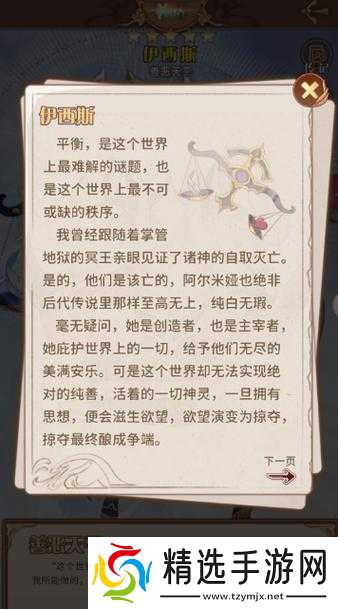 伊西斯
伊西斯
平衡，是这个世界
上最难解的谜题，也
是这个世界上最不可
或缺的秩序。
我曾经跟随着掌管
地狱的冥王亲眼见证了诸神的自取灭亡。
是的，他们是该亡的，阿尔米娅也绝非
后代传说里那样至高无上，纯白无瑕。
毫无疑问，她是创造者，也是主宰者，
她庇护世界上的一切，给予他们无尽的
美满安乐。可是这个世界却无法实现绝
对的纯善，活着的一切神灵，一旦拥有
思想，便会滋生欲望，欲望演变为掠夺，
掠夺最终酿成争端。
下一页
善恶天
"这个世
我所能做的，
精选手游网
www.tzymjx.net